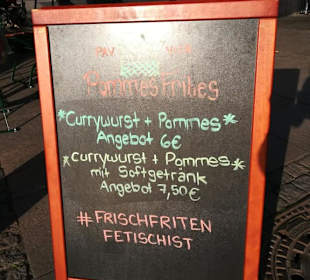 Pommes Frites
*Currywurst + Pommes*
Angebot 6€
*Currywurst + Pommes*
mit Softgetränk
Angebot 7,50€
#FRISCHFRITEN
FETISCHIST